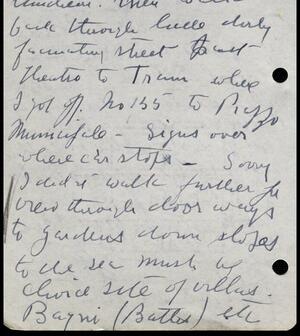 back through little dirty
fascinating street past
theatre to Tram where
I got off. No 155 to Piazzo
Municipale - Signs over
where car stops - Sorry
I didn't walk further for
view through door ways
to gardens down slopes
to the sea must be
choice site of villas.
Bagni (Baths) etc